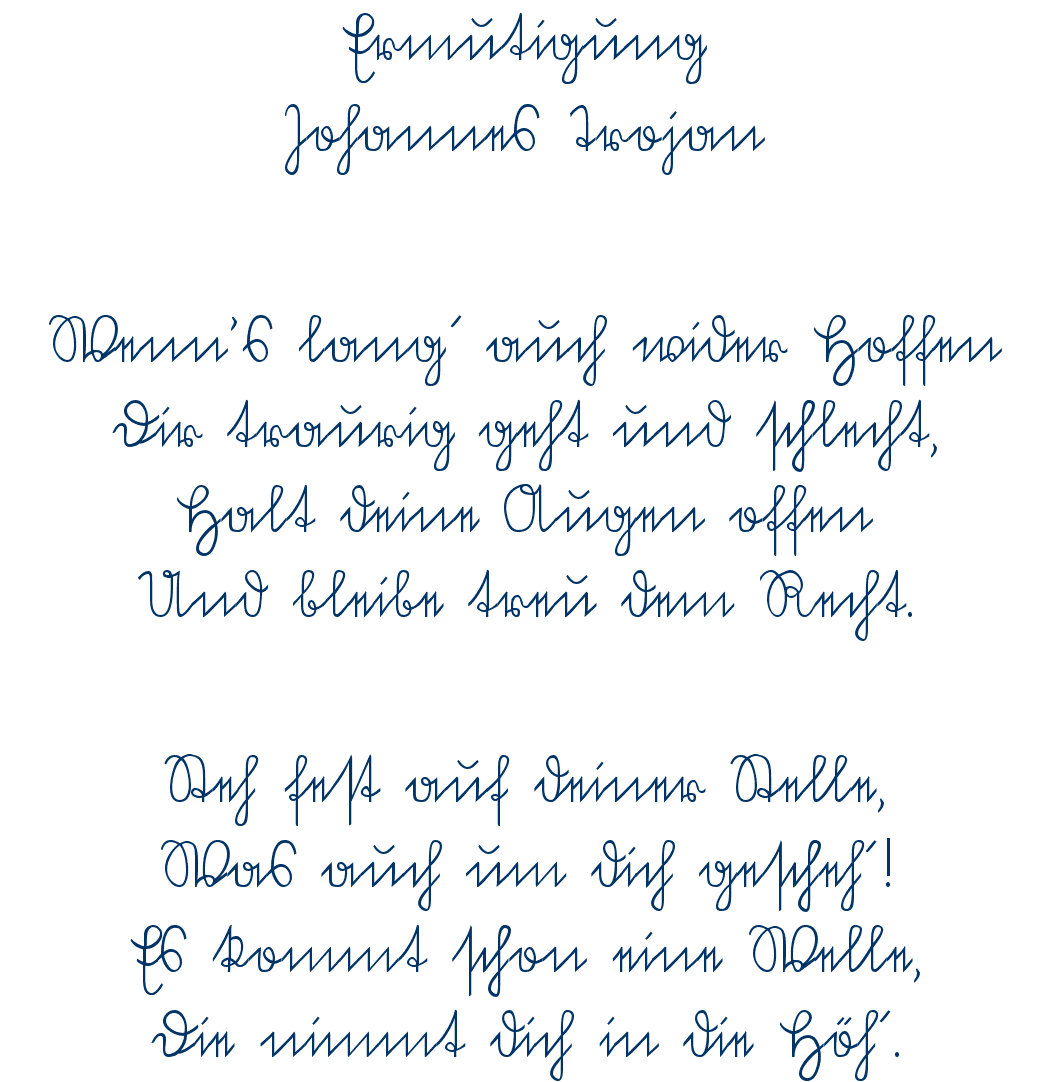 Ermutigung
Johannes Trojan
Wenn's lang´ auch wider Hoffen
Dir traurig geht und schlecht,
Halt deine Augen offen
Und bleibe treu dem Recht.
Steh fest auf deiner Stelle,
Was auch um dich gescheh´!
Es kommt schon eine Welle,
Die nimmt dich in die Höh´.